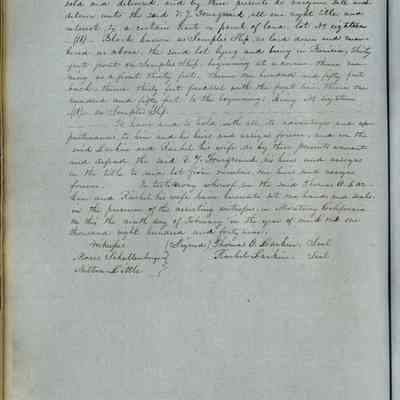 sold and delivered, and by these presents do
deliver unto the said V. J. Fourgeaud, all our right title and
interest to a certain tract or parcel of land, lot No eighteen
(18) Block known as Semples Slip, as laid down and num-
bered as above, the said lot lying and being in Benicia, thirty
feet front on Semples Slip, beginning at a corner, thence run-
ning as a front thirty feet, thence one hundred and fifty feet
back, thence thirty feet parallel with the front line, thence one
hundred and fifty feet to the beginning; being No eighteen
(18) on Semples Slip.
To have and to hold with all its advantages and ap-
purtenances to him and his heirs and assigns forever, and we the
said Larkin and Rachel his wife do by these presents warrant
and defend the said V. J. Fourgeaud his heirs and assigns
in the title to said lot from ourselves, our heirs and assigns
forever. In testimony whereof we the said Thomas O. Lar-
kin and Rachel his wife have hereunto set our hands and seals
in the presence of the assisting witnesses, in Monterey California
on this the ninth day of February in the year of our Lord one
thousand eight hundred and forty nine.
Witnesses (Signed) Thomas O. Larkin Seal
Moses Schallenberger Rachel Larkin Seal
Milton Little